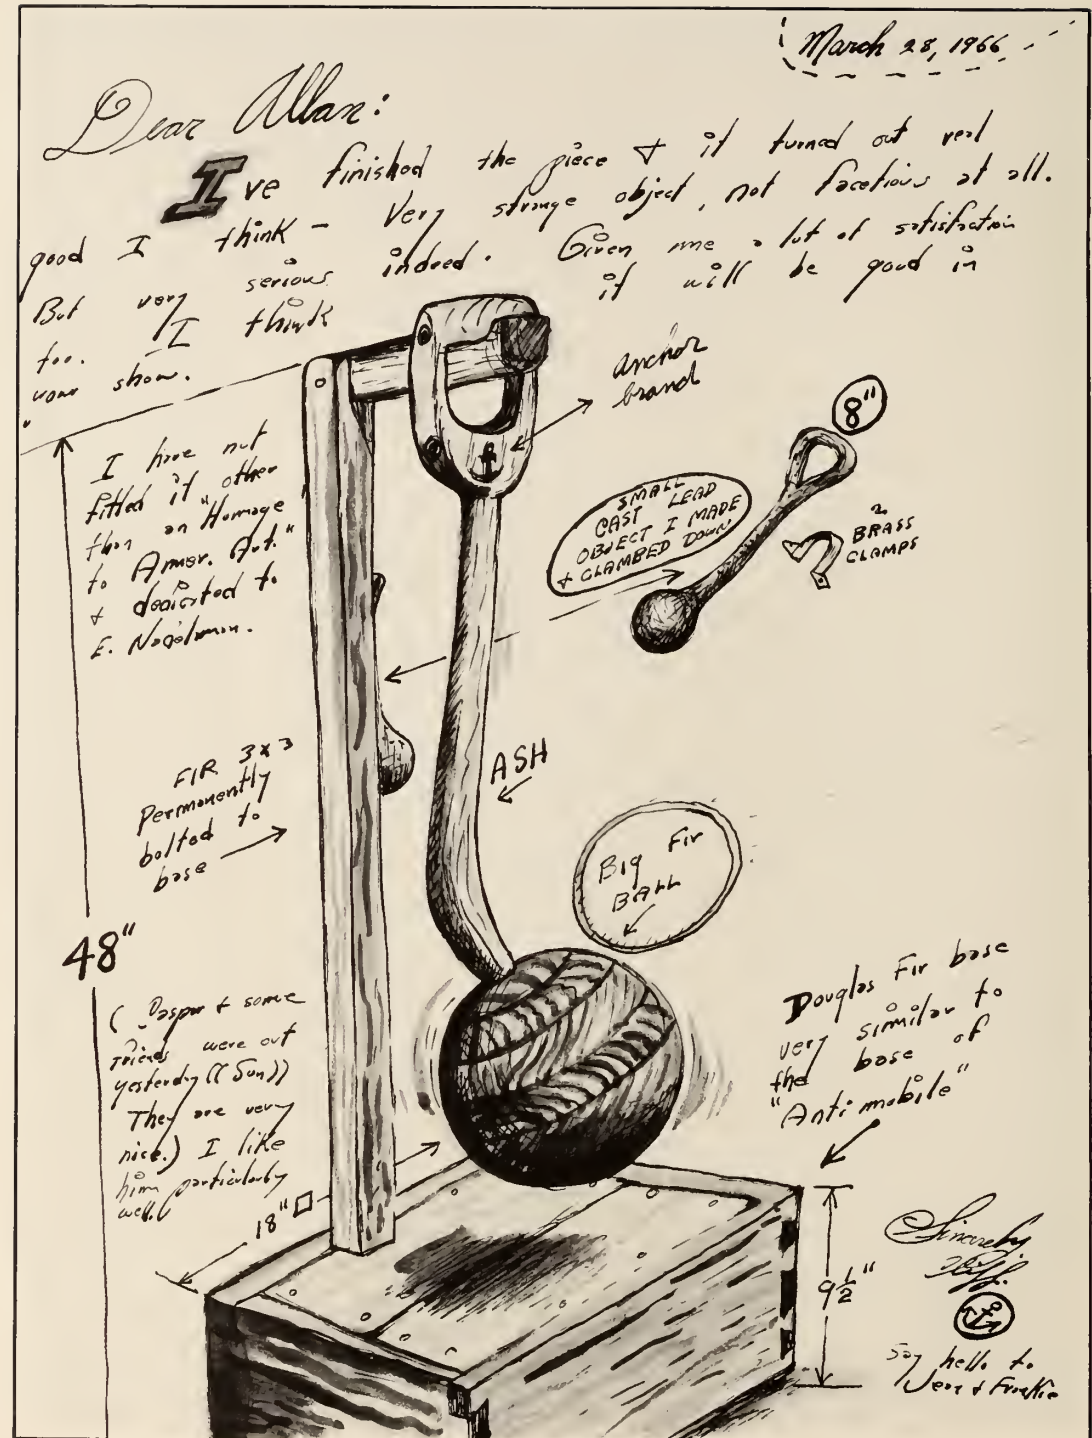 March 28, 1966
Dear Allan:
I've finished the piece & it turned out real
good I think - Very strange object, not facetious at all.
But very serious indeed. Given me a lot of satisfaction
too. I think it will be good in
your show.
anchor
brand
8"
I have not
titled it other
than an "Homage
to Amer. Art."
& dedicated to
E. Nadelman.
SMALL
CAST LEAD
OBJECT I MADE
& CLAMBED DOWN
2
BRASS
CLAMPS
FIR 3x3
Permanently
bolted to
base
ASH
Big Fir
BALL
48"
(Jasper & some
friends were out
yesterday ((Sun))
They are very
nice.) I like
him particularly
well.
Douglas Fir base
very similar to
the base of
"Anti mobile"
18"
9 1/2"
Sincerely
Say hello to
& Frankie